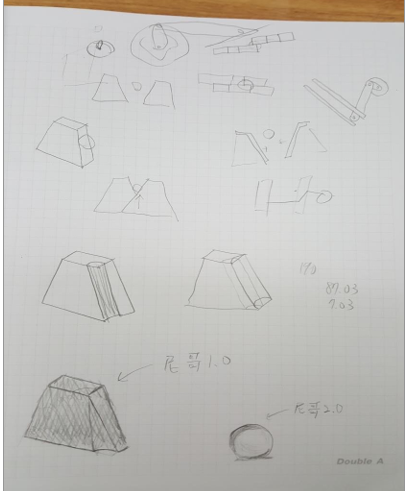 170
87.03
7.03
尼哥1.0
尼哥2.0
Double A